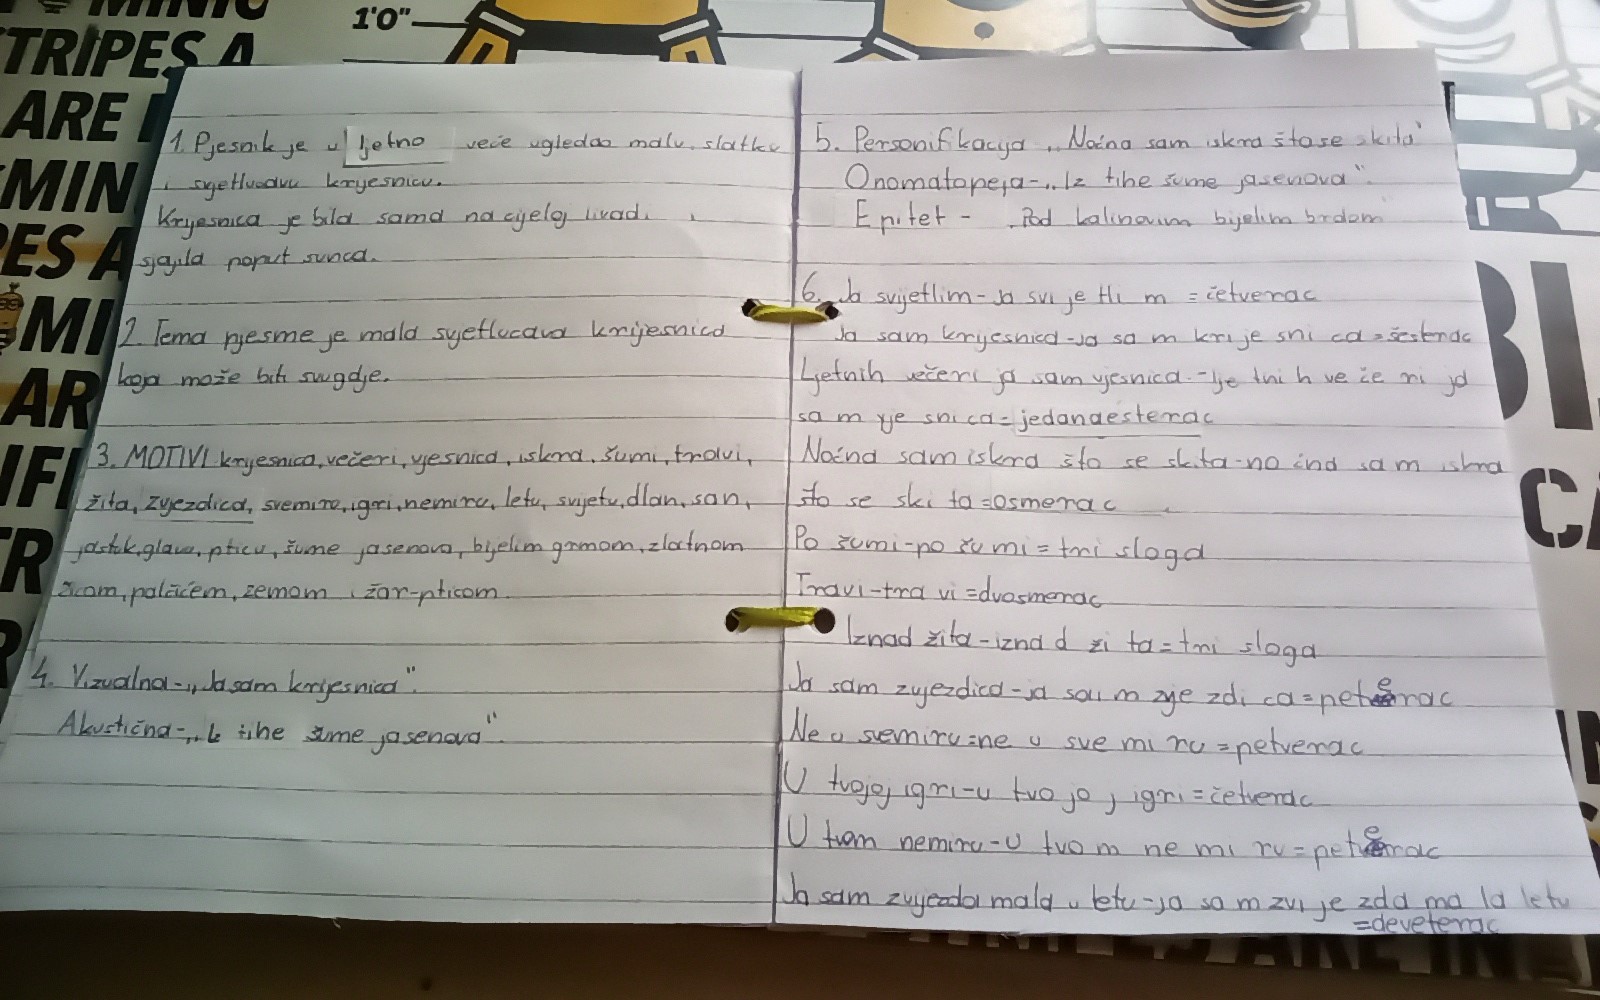 MINIO
TRIPES A
ARE
MIN
ES A
MI
AR
IFI
R
1'0"
1. Pjesnik je u ljetno veče ugledao malu, slatku
i svjetlucavu krijesnicu.
Krijesnica je bila sama na cijeloj livadi,
sjajila poput sunca.
2. Tema pjesme je mala svjetlucava krijesnica
koja može biti svugdje.
3. MOTIVI krijesnica, večeri, vjesnica, iskra, šumi, travi,
žita, zvjezdica, svemiru, igri, nemiru, letu, svijetu, dlan, san,
jastuk, glava, pticu, šume jasenova, bijelim grmom, zlatnom
žicom, palčićem, zemom i žar-pticom.
4. Vizualna-„Ja sam krijesnica".
Akustična-„Iz tihe šume jasenova".
5. Personifikacija „Noćna sam iskra što se skita"
Onomatopeja-„Iz tihe šume jasenova".
Epitet - „Pod kalinovim bijelim brdom"
6. Ja svijetlim-Ja svi je tli m = četverac
Ja sam krijesnica-Ja sa m kri je sni ca = šesterac
Ljetnih večeri ja sam vjesnica.-lje tni h ve če ri ja
sa m vje sni ca = jedanaesterac
Noćna sam iskra što se skita-no ćna sa m iskra
što se ski ta = osmerac
Po šumi-po šu mi = tri sloga
Travi-tra vi = dvosmerac
Iznad žita-izna d ži ta = tri sloga
Ja sam zvjezdica-ja sa m zvje zdi ca = peterac
Ne u svemiru = ne u sve mi ru = petverac
U tvojoj igri-u tvo jo j igri = četverac
U tvom nemiru-U tvo m ne mi ru = peterac
Ja sam zvijezda mala u letu-ja sa m zvi je zda ma la letu
= deveterac
BI
CA